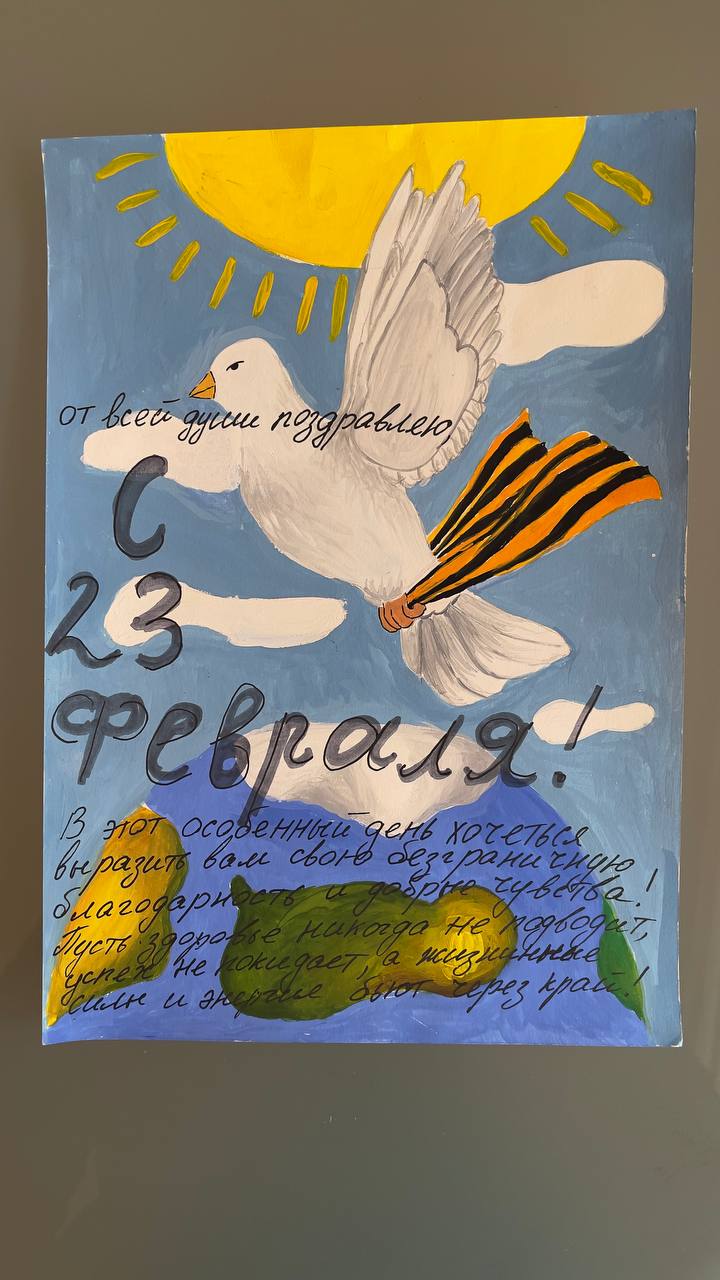 от всей души поздравляю,
С
23
февраля!
В этот особенный день хочеться
выразить вам свою безграничную
благодарность и добрые чувства!
Пусть здоровье никогда не подводит,
успех не покидает, а жизнинные
силы и энергие бьют через край!